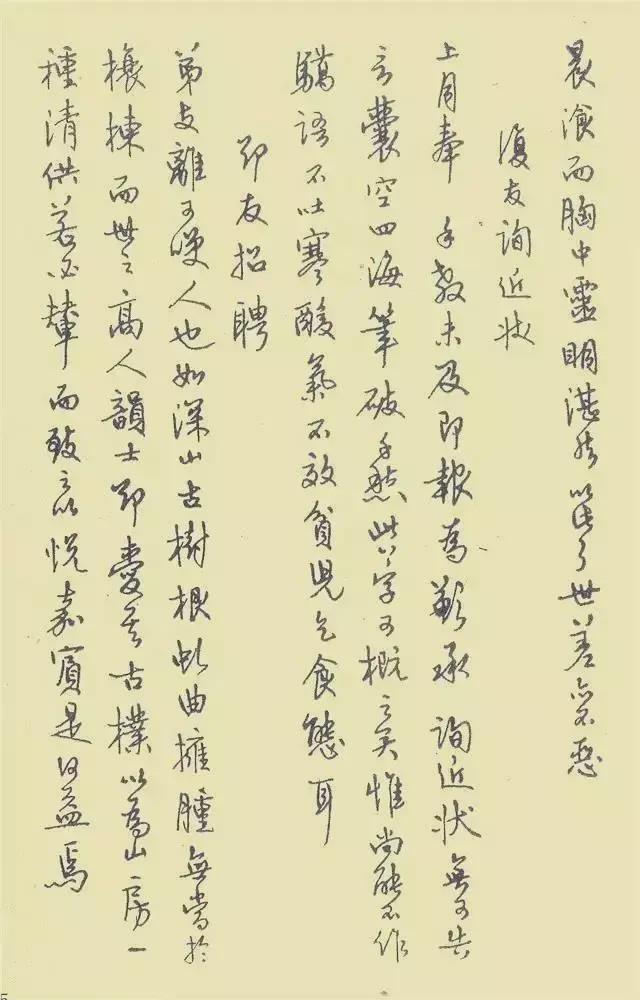 晨飡而胸中靈明湛然以此了世差亦不惡
復友詢近状
上月奉 手教未及即報為歉承 詢近状無可告
言囊空四海筆破千愁此八字可概之矣惟尚能不作
驕語不吐寒酸氣不效貧児乞食態耳
却友招聘
弟支離可哽人也如深山古樹根虬曲擁腫無當於
榱棟而世之高人韻士却愛其古樸以為山房一
種清供若必輦而致之以悦嘉賓是何益焉
5